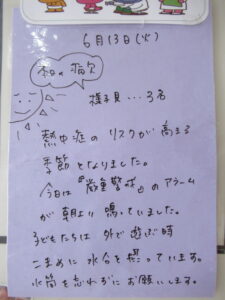 6月13日(火)
本日の病欠
様子見...3名
熱中症のリスクが高まる
季節となりました。
今日は『厳重警戒』のアラーム
が朝より鳴っていました。
子どもたちは外で遊ぶ時
こまめに水分を摂っています。
水筒を忘れずにお願いします。